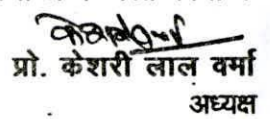 प्रो. केशरी लाल वर्मा
अध्यक्ष